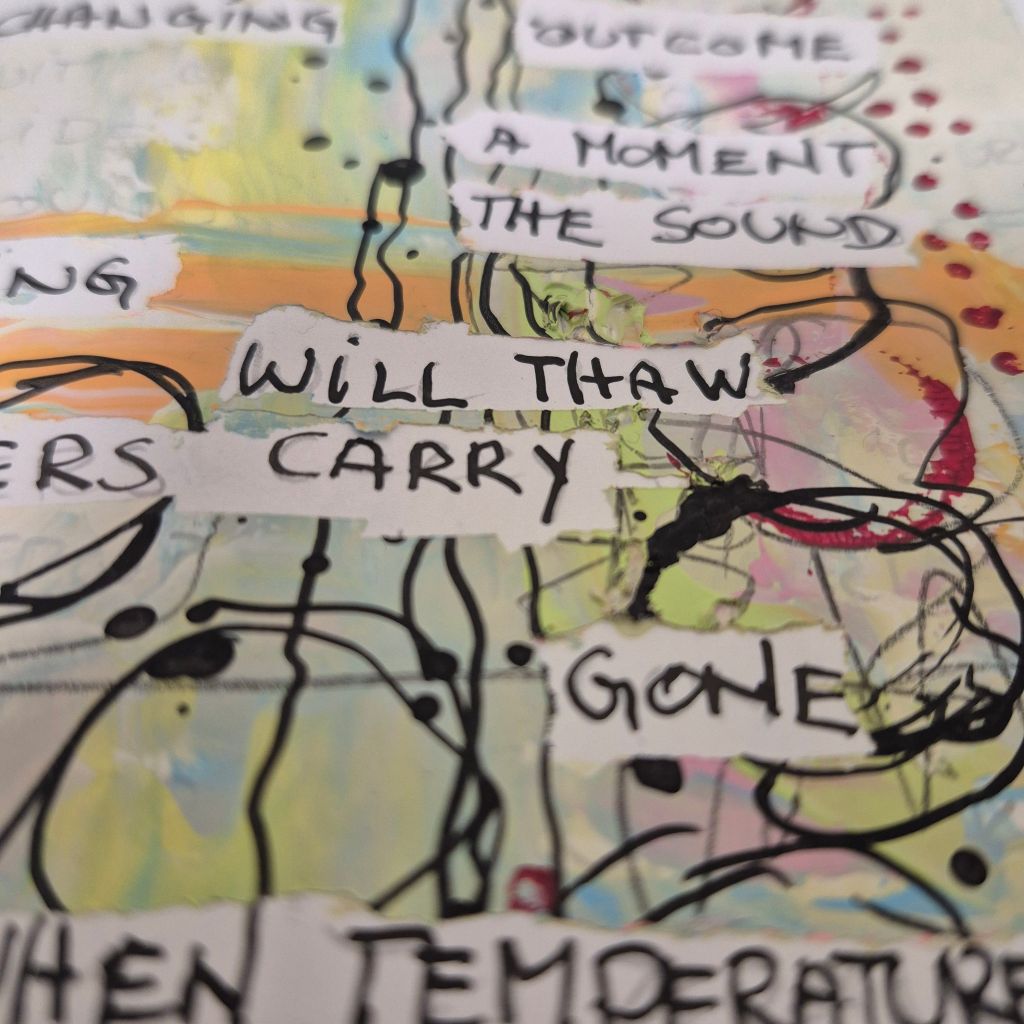 CHANGiNG
OUTCOME
A MOMENT
THE SOUND
NG
WiLL THAW
ERS CARRY
GONE
WHEN TEMPERATURE